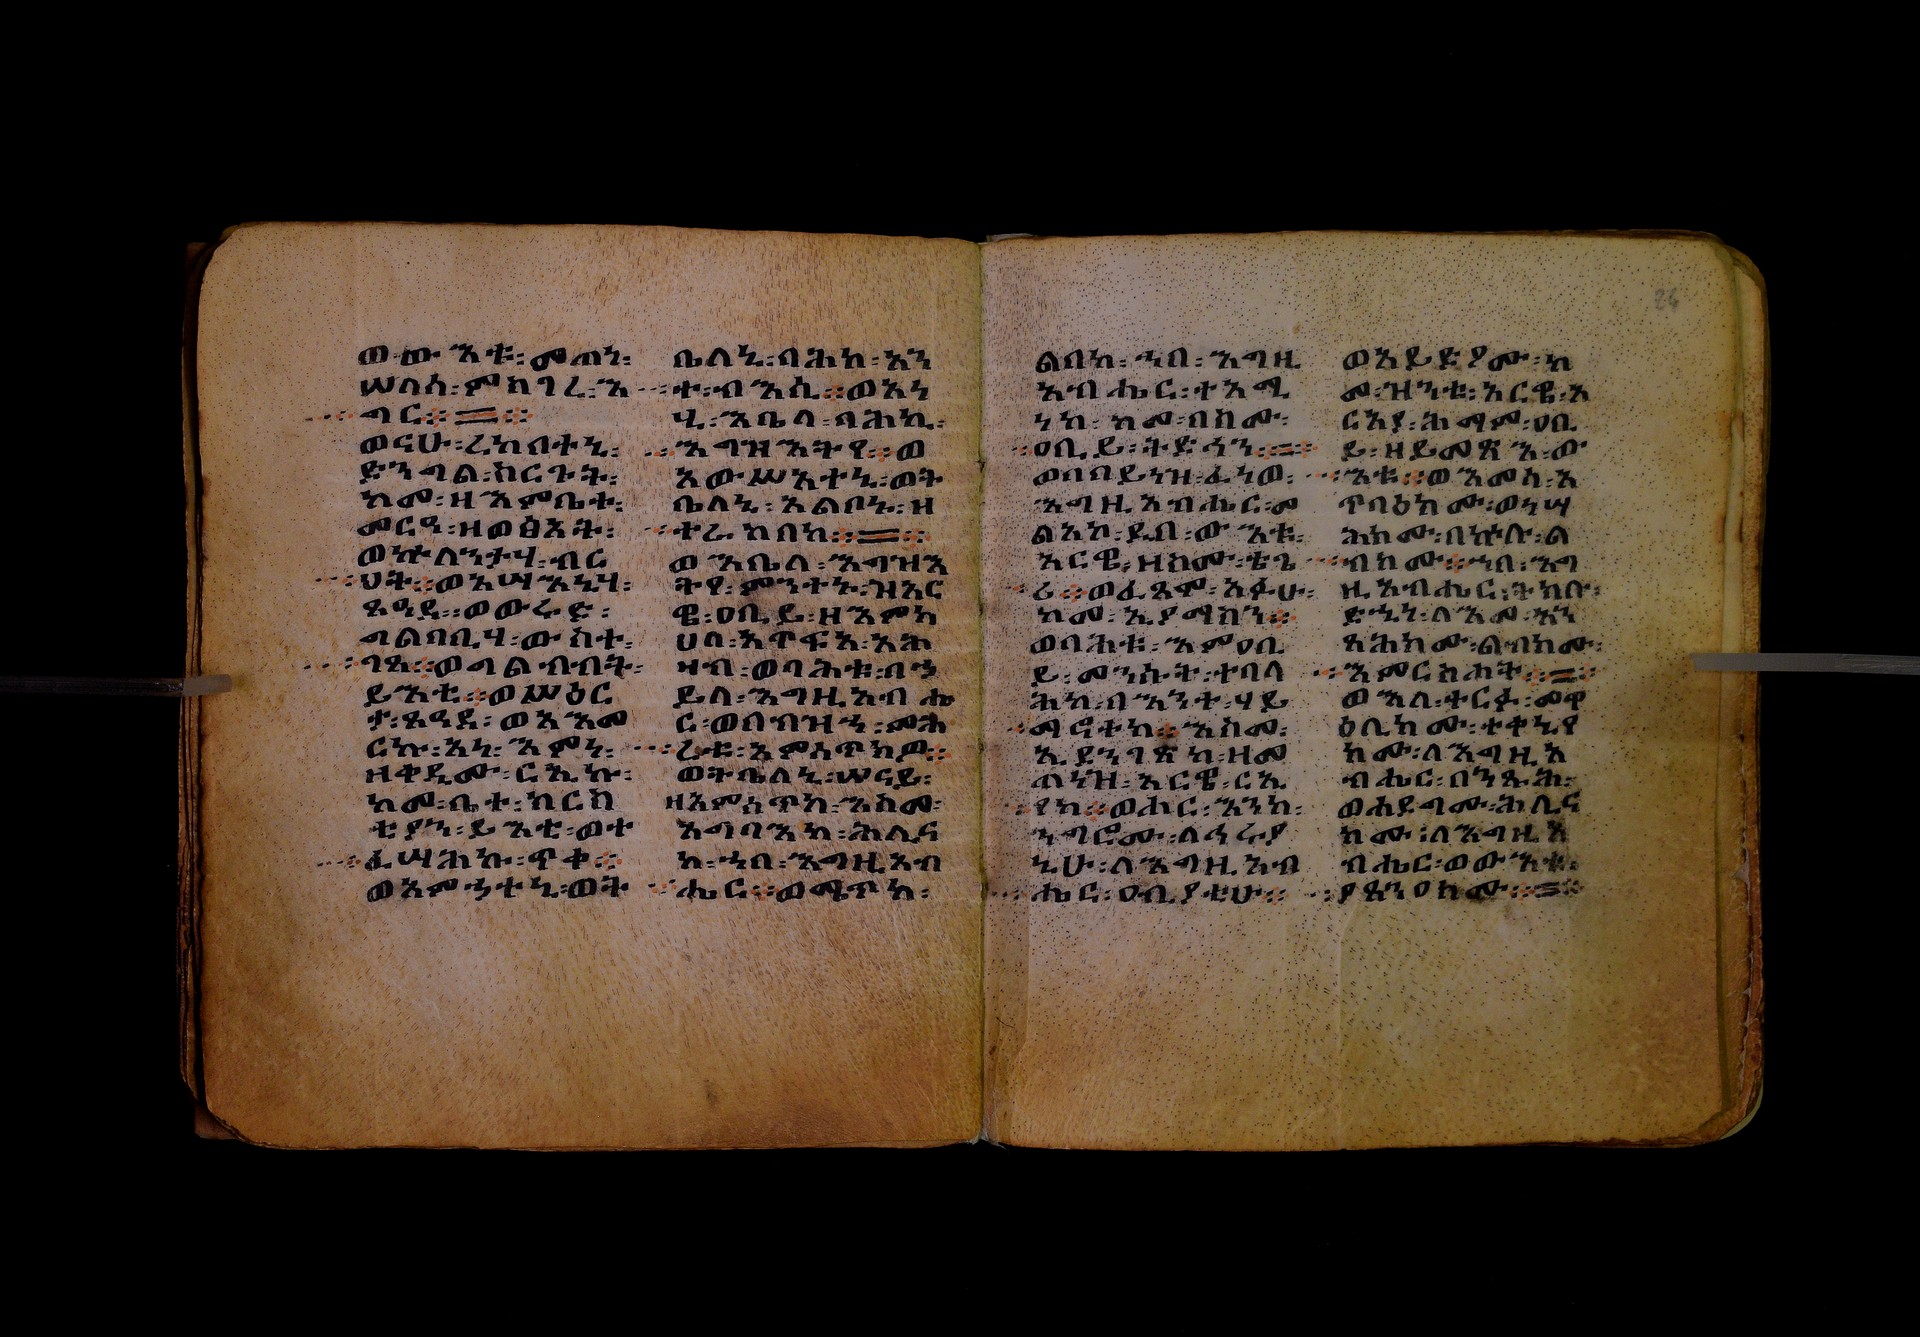 ወውእቱ፡መጠነ፡
ሠለስ፡ምክንረ፡እ
ግር።
ወናሁ፡ረከበተኒ፡
ድንግል፡ከርጉት፡
ከመ፡ዘእምቤተ፡
መርዓ፡ዘወፅአት፡
ወኵለንታሃ፡ብር
ህት።ወአሣእኒሃ፡
ጸዓደ።ወውሩድ፡
ግልባቢሃ፡ውስተ፡
ገጻ።ወግልብብት፡
ይእቲ።ወሥዕር
ታ፡ጸዓደ፡ወአእመ
ርኩ፡አነ፡እምነ፡
ዘቀዲሙ፡ርኢኩ፡
ከመ፡ቤተ፡ክርስ
ቲያን፡ይእቲ፡ወተ
ፈሣሕኩ፡ጥቀ።
ወአምኃተኒ፡ወት
ቤለኒ፡ባሕከ፡አን
ተ፡ብእሲ።ወአነ
ሂ፡እቤላ፡ባሕኪ፡
እግዝእትየ።ወ
አውሥአተኒ፡ወት
ቤለኒ፡አልቦኑ፡ዘ
ተራከበከ።
ወእቤላ፡እግዝእ
ትየ፡ምንተኑ፡ዝአር
ዌ፡ዐቢይ፡ዘእምክ
ሀለ፡አጥፍአ፡አሕ
ዛበ፡ወባሕቱ፡በኃ
ይለ፡እግዚአብሔ
ር፡ወበብዝኀ፡ምሕ
ረቱ፡አምሰጥክዎ።
ወትቤለኒ፡ሠናይ፡
ዘአምሰጥከ፡እስመ፡
አግባእከ፡ሕሊና
ከ፡ኀበ፡እግዚአብ
ሔር።ወሜጥከ፡
ልበከ፡ኀበ፡እግዚ
አብሔር፡ተአሚ
ነከ፡ከመ፡በስሙ፡
ዐቢይ፡ትድኅን።
ወበበይነዝ፡ፈነወ፡
እግዚአብሔር፡መ
ልአከ፡ዲበ፡ውእቱ፡
አርዌ፡ዘስሙ፡ቴጌ
ሪ።ወፈጸሞ፡አፉሁ፡
ከመ፡ኢያማስን።
ወባሕቱ፡እምዐቢ
ይ፡መንሱት፡ተባላ
ሕከ፡በእንተ፡ሃይ
ማኖትከ።እስመ፡
ኢደንገጽከ፡ዘመ
ጠነዝ፡አርዌ፡ርኢ
የከ።ወሑር፡እንከ፡
ንግሮሙ፡ለኅሩያ
ኒሁ፡ለእግዚአብ
ሔር፡ዐቢያቲሁ።
ወአይድዖሙ፡ከ
መ፡ዝንቱ፡አርዌ፡አ
ርአያ፡ሕማም፡ዐቢ
ይ፡ዘይመጽእ፡ው
እቱ።ወእመሰ፡አ
ጥባዕክሙ፡ወነሣ
ሕክሙ፡በኵሉ፡ል
ብክሙ።ኀበ፡እግ
ዚአብሔር፡ትክሉ፡
ድኂነ፡ለእመ፡አን
ጻሕክሙ፡ልብክሙ፡
እምርስሐት።
ወእለ፡ተርፉ፡መዋ
ዕሊክሙ፡ተቀነዩ
ክሙ፡ለእግዚአ
ብሔር፡በንጹሕ፡
ወሕይግሙ፡ሕሊና
ክሙ፡ለእግዚአ
ብሔር፡ወውእቱ፡
ያጸንዐክሙ።